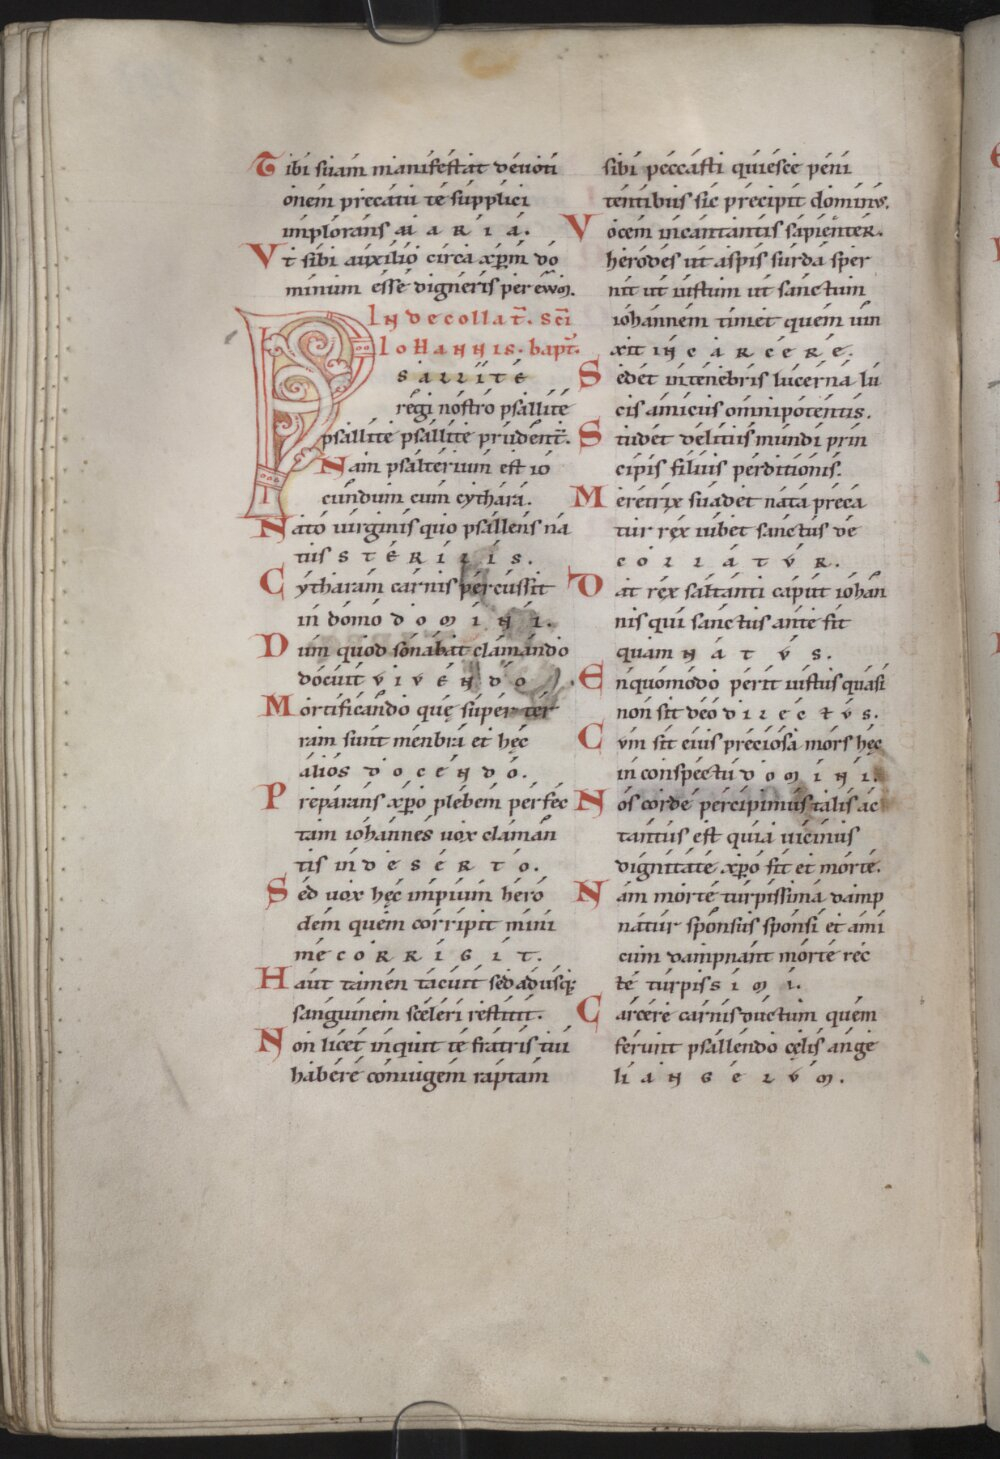 Tibi suam manifestat deuoti
onem precatu te supplici
implorans MARIA.
Vt sibi auxilio circa xp̄m do
minum esse digneris per ęuum.
In decollat̄. sc̄i
Iohannis. bapt̄.
PSALLITE
regi nostro psallite
psallite psallite prudent̄.
Nam psalterium est io
cundum cum cythara.
Nato uirginis quo psallens na
tus STERILIS.
Cytharam carnis percussit
in domo DOMINI.
Dum quod sonabat clamando
docuit VIVENDO.
Mortificando quę super ter
ram sunt menbra et hęc
alios DOCENDO.
Preparans xp̄o plebem perfec
tam iohannes uox claman
tis in DESERTO.
Sed uox hęc impium hero
dem quem corripit mini
me CORRIGIT.
Haut tamen tacuit sed adusq;
sanguinem sceleri restitit.
Non licet inquit te fratris tui
habere coniugem raptam
sibi peccasti quiesce peni
tentibus sic precipit dominus.
Vocem incantantis sapienter.
herodes ut aspis surda sper
nit ut iustum ut sanctum
iohannem timet quem uin
xit IN CARCERE.
Sedet in tenebris lucerna lu
cis amicus omnipotentis.
Studet delitiis mundi prin
cipis filius perditionis.
Meretrix suadet nata preca
tur rex iubet sanctus de
COLLATVR.
Dat rex saltanti caput iohan
nis qui sanctus ante fit
quam NATVS.
En quomodo perit iustus quasi
non sit deo DILECTVS.
Cvm sit eius preciosa mors hęc
in conspectu DOMINI.
Nos corde percipimus talis ac
tantus est quia uicinus
dignitate xp̄o fit et morte.
Nam morte turpissima damp
natur sponsus sponsi et ami
cum dampnant morte rec
te turpisSIMI.
Carcere carnis ductum quem
ferunt psallendo cęlis ange
li ANGELVM.